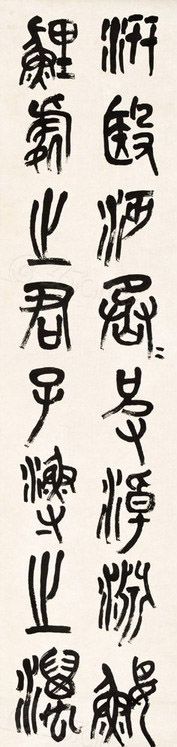 汧殹沔丞=皮淖淵鰋
鯉處之君子漁之澫